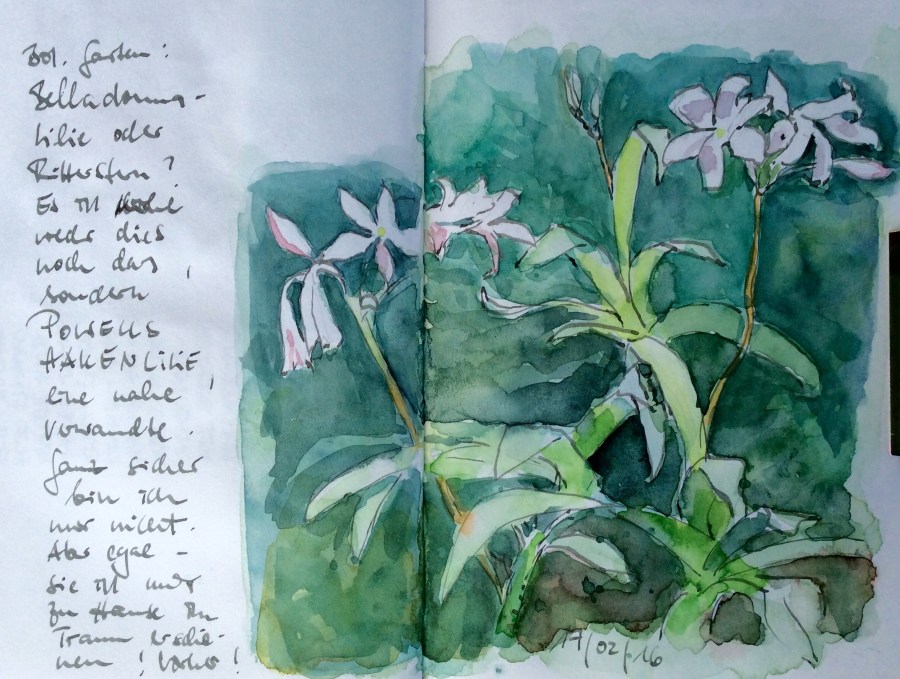 Bot. Garten:
Belladonna-
Lilie oder
Ritterstern?
Es ist
weder dies
noch das,
sondern
POWELLS
HAKENLILIE,
eine nahe
Verwandte.
Ganz sicher
bin ich
mir nicht.
Aber egal –
sie ist mir
zu Hause im
Traum erschie-
nen!
/02/16